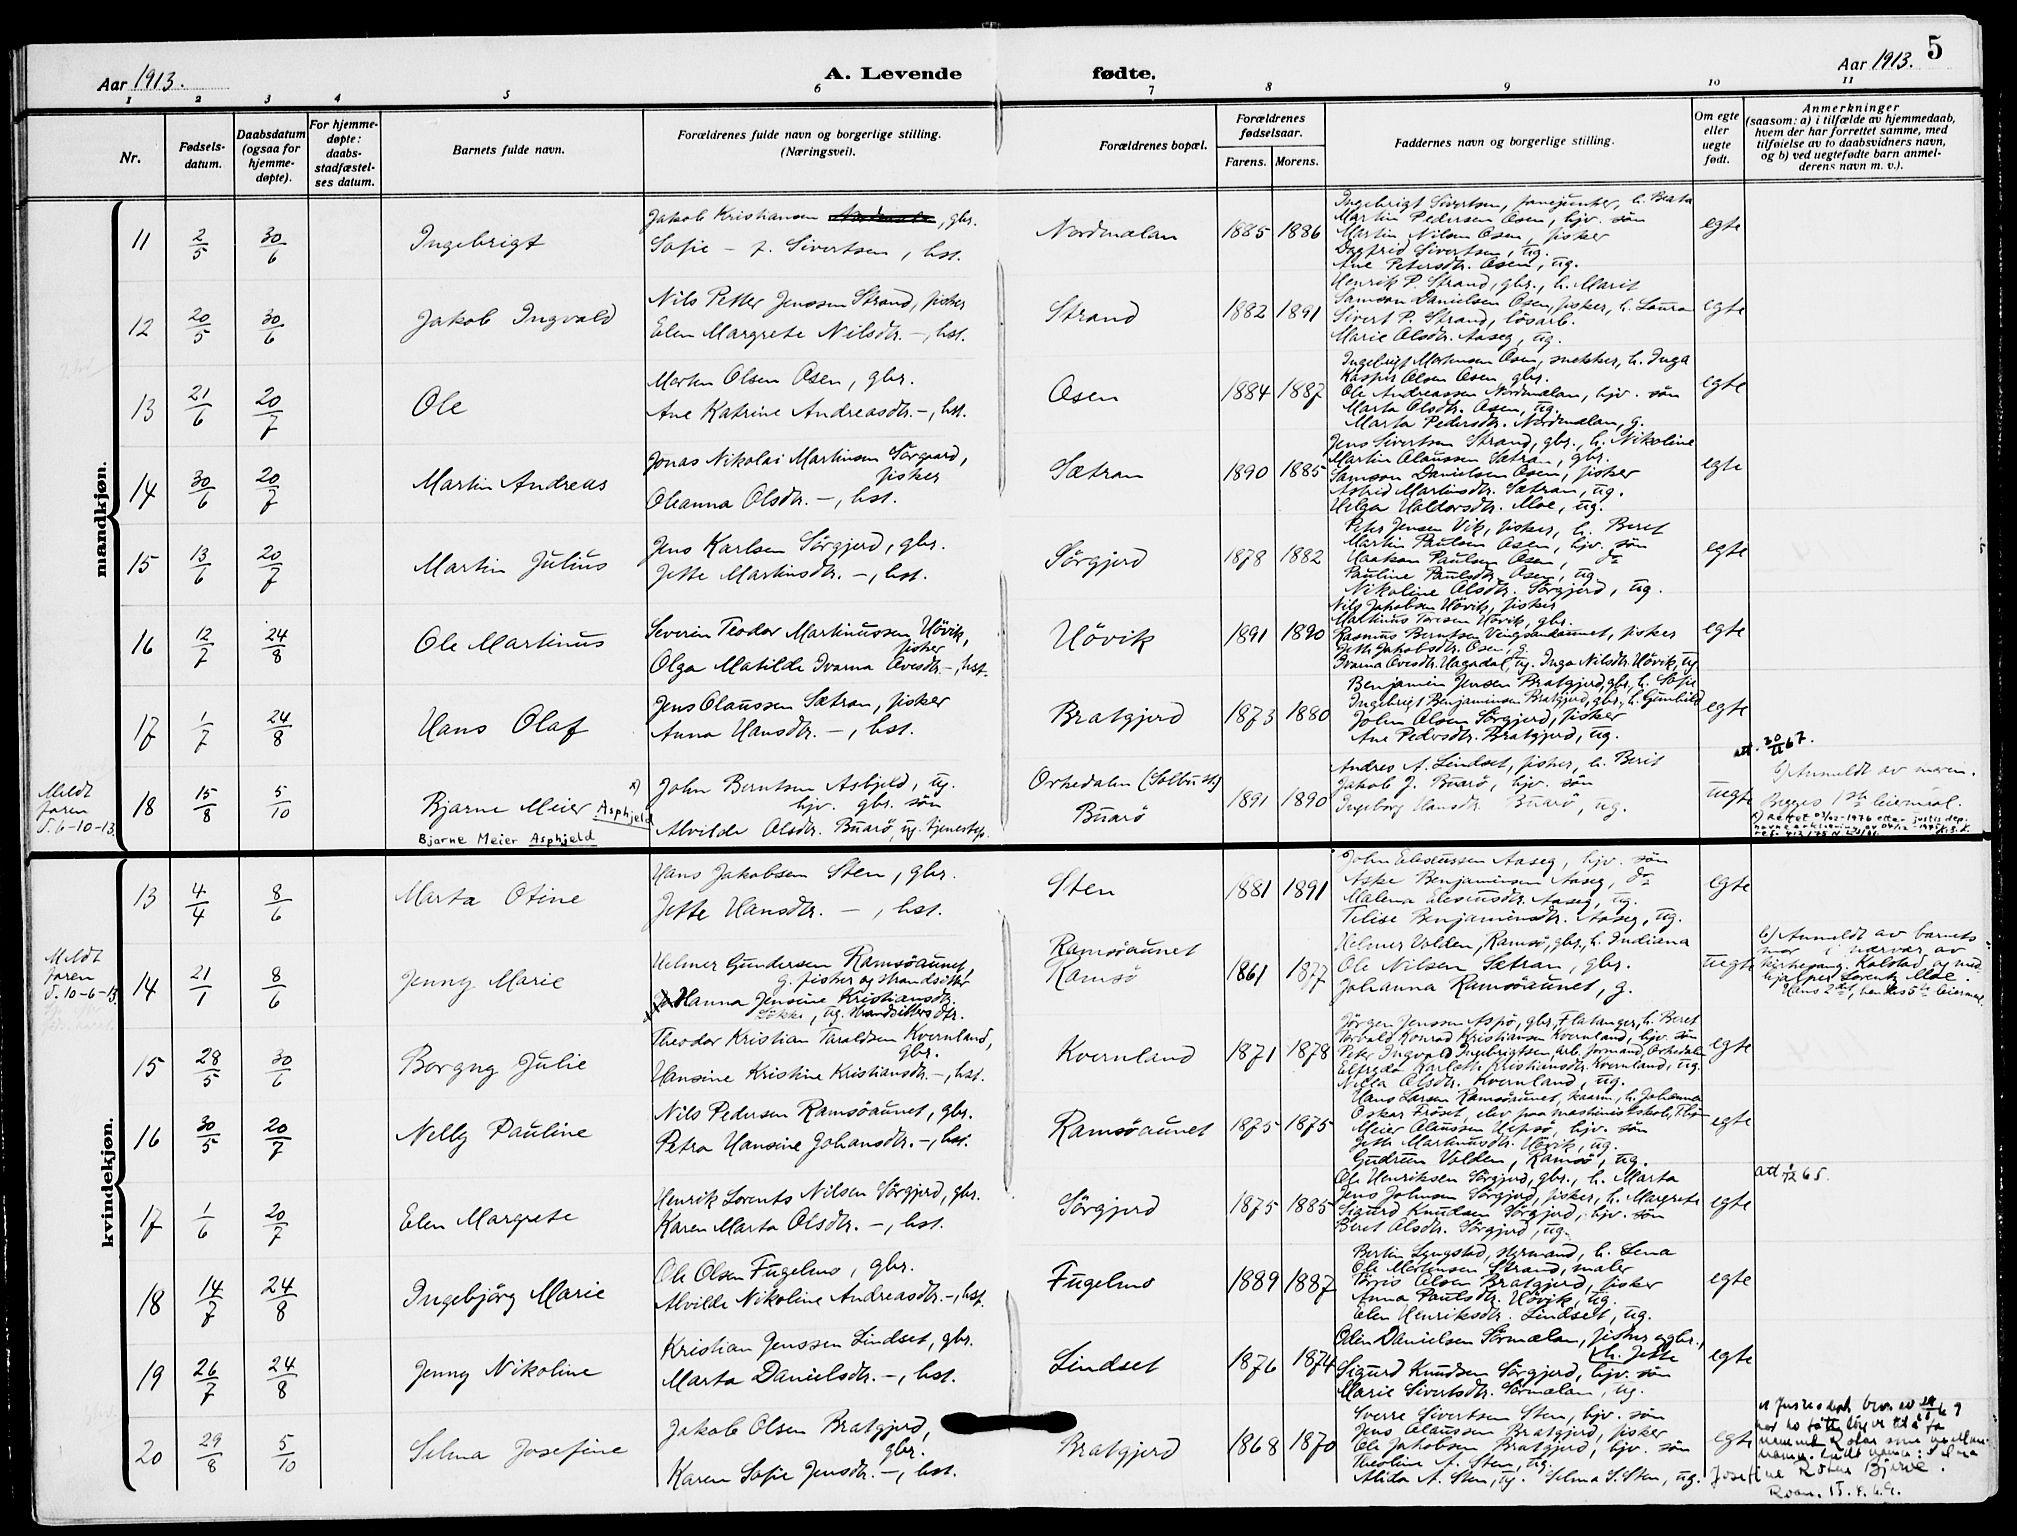 Aar 1913.
A. Levende fødte.
Aar 1913.
5
1 2 3 4 5 6 7 8 9 10 11
Nr.
Fødsels-
datum.
Daabsdatum
(ogsaa for
hjemme-
døpte).
For hjemme-
døpte:
daabs-
stadfæstel-
ses datum.
Barnets fulde navn.
Forældrenes fulde navn og borgerlige stilling.
(Næringsvei).
Forældrenes bopæl.
Forældrenes
fødselsaar.
Farens. Morens.
Faddernes navn og borgerlige stilling.
Om egte
eller
uegte
født.
Anmerkninger
(saasom: a) i tilfælde av hjemmedaab,
hvem der har forrettet samme, med
tilføielse av to daabsvidners navn,
og b) ved uegtefødte barn anmel-
derens navn m. v.).
mandkjøn.
11 2/5 30/6 Ingebrigt
Jakob Kristiansen, gbr.
Sofie – f. Sivertsen, hst.
Nordmælan 1885 1886
Ingebrigt Sivertsen, fanejunker, h. Beata
Martin Pedersen Osen, hjv. søn
Martin Nilsen Osen, fisker
Dagfrid Sivertsen, ug.
Ane Petersdtr. Osen, ug.
egte
12 20/5 30/6 Jakob Ingvald
Nils Petter Jenssen Strand, fisker
Elen Margrete Nilsdtr. –, hst.
Strand 1882 1891
Henrik P. Strand, gbr., h. Marit
Samson Danielsen Osen, fisker, h. Laura
Sivert P. Strand, løsarb.
Marie Olsdtr. Aaseg, ug.
egte
13 21/6 20/7 Ole
Morten Olsen Osen, gbr.
Ane Katrine Andreasdtr. –, hst.
Osen 1884 1887
Ingebrigt Mortensen Osen, snekker, h. Inga
Kasper Olsen Osen, gbr.
Ole Andreassen Nordmælan, hjv. søn
Marta Olsdtr. Osen, ug.
Marta Pedersdtr. Nordmælan, g.
egte
14 30/6 20/7 Martin Andreas
Jonas Nikolai Martinsen Sørgaard,
fisker
Oleanna Olsdtr. –, hst.
Sætran 1890 1885
Jens Sivertsen Strand, gbr., h. Nikoline
Martin Olaussen Sætran, gbr.
Samson Danielsen Osen, fisker
Astrid Martinsdtr. Sætran, ug.
Helga Haldorsdtr. Moe, ug.
egte
15 13/6 20/7 Martin Julius
Jens Karlsen Sørgjerd, gbr.
Jette Martinsdtr. –, hst.
Sørgjerd 1878 1882
Peter Jensen Vik, fisker, h. Beret
Martin Paulsen Osen, hjv. søn
Haakon Paulsen Osen, do
Pauline Paulsdtr. Osen, ug.
Nikoline Olsdtr. Sørgjerd, ug.
egte
16 12/7 24/8 Ole Martinus
Severin Teodor Martinussen Høvik,
fisker
Olga Matilde Ivarna Ovesdtr. –, hst.
Høvik 1891 1890
Nils Jakobsen Høvik, fisker
Martinus Toresen Høvik, gbr.
Rasmus Berntsen Vingsandaunet, fisker
Jette Jakobsdtr. Osen, g.
Ivarna Ovesdtr. Hagadal, ug. Inga Nilsdtr. Høvik, ug.
egte
17 1/7 24/8 Hans Olaf
Jens Olaussen Sætran, fisker
Anna Hansdtr. –, hst.
Bratgjerd 1873 1880
Benjamin Jensen Bratgjerd, gbr., h. Sofie
Ingebrigt Benjaminsen Bratgjerd, gbr., h. Gunhild
John Olsen Sørgjerd, fisker
Ane Pedersdtr. Bratgjerd, ug.
egte
att. 20/11 67.
Meldt
faren
d. 6-10-13.
18 15/8 5/10 Bjarne Meier Asphjeld
Bjarne Meier Asphjeld
John Berntsen Asbjeld, ug.
hjv. gbr. søn
Alvilde Olsdtr. Buarø, ug. tjenestep.
Orkedalen (Solbusk)
Buarø
1891 1890
Andres A. Lindset, fisker, h. Berit
Jakob J. Buarø, hjv. søn
Ingeborg Hansdtr. Buarø, ug.
uegte
b) Anmeldt av moren.
Begges 1ste leiermaal.
kvindekjøn.
13 4/4 8/6 Marta Otine
Hans Jakobsen Sten, gbr.
Jette Hansdtr. –, hst.
Sten 1881 1891
John Eliseussen Aaseg, hjv. søn
Aske Benjaminsen Aaseg, do
Malena Eliseusdtr. Aaseg, ug.
Telise Benjaminsdtr. Aaseg, ug.
egte
Meldt
faren
d. 10-6-13.
14 21/1 8/6 Jenny Marie
Helmer Gundersen Ramsøaunet
g. fisker og strandsitter
Hanna Jensine Kristiansdtr.
Søkke, ug. strandsitters dtr.
Ramsøaunet
Ramsø
1861 1877
Helmer Volden, Ramsø, gbr., h. Indiana
Ole Nilsen Sætran, gbr.
Johanna Ramsøaunet, g.
uegte
b) Anmeldt av barnets
mor i nærvær av
kirkesang. Kolstad og med-
hjælper Lorentz Moe.
Hans 2det, hendes 5te leiermaal.
15 28/5 30/6 Borgny Julie
Theodor Kristian Taraldsen Kvernland,
gbr.
Hansine Kristine Kristiansdtr. –, hst.
Kvernland 1871 1878
Jørgen Jenssen Aspø, gbr., Flatanger, h. Beret
Torvald Konrad Kristiansen Kvernland, hjv. søn
Peter Ingvald Ingebrigtsen, arb. formand, Orkedalen
Elfreda Karlotte Kristiansdtr. Kvernland, ug.
Nilla Olsdtr. Kvernland, ug.
egte
16 30/5 20/7 Nelly Pauline
Nils Pedersen Ramsøaunet, gbr.
Petra Hansine Johansdtr. –, hst.
Ramsøaunet 1875 1875
Hans Larsen Ramsøaunet, kaarm., h. Johanna
Oskar Frøset, elev paa maskinistskole, Thjem
Meier Olaussen Hepsø, hjv. søn
Jette Martinusdtr. Høvik, ug.
Gudrun Volden, Ramsø, ug.
egte
17 1/6 20/7 Elen Margrete
Henrik Lorents Nilsen Sørgjerd, gbr.
Karen Marta Olsdtr. –, hst.
Sørgjerd 1875 1885
Ole Henriksen Sørgjerd, gbr., h. Marta
Jens Johnsen Sørgjerd, fisker, h. Margrete
Sigurd Knudsen Sørgjerd, hjv. søn
Beret Olsdtr. Sørgjerd, ug.
egte
18 14/7 24/8 Ingebjørg Marie
Ole Olsen Fugelmo, gbr.
Alvilde Nikoline Andreasdtr. –, hst.
Fugelmo 1889 1887
Bertin Lyngstad, styrmand, h. Lena
Ole Mortensen Strand, maler
Torgis Olsen Bratgjerd, fisker
Anna Paulsdtr. Høvik, ug.
Elen Henriksdtr. Lindset, ug.
egte
19 26/7 24/8 Jenny Nikoline
Kristian Jenssen Lindset, gbr.
Marta Danielsdtr. –, hst.
Lindset 1876 1874
Odin Danielsen Sørmælan, fisker og gbr.,
h. Jette
Sigurd Knudsen Sørgjerd, hjv. søn
Marie Sivertsdtr. Sørmælan, ug.
egte
20 29/8 5/10 Selma Josefine
Jakob Olsen Bratgjerd,
gbr.
Karen Sofie Jensdtr. –, hst.
Bratgjerd 1868 1870
Sverre Sivertsen Sten, hjv. søn
Jens Olaussen Bratgjerd, fisker
Ole Jakobsen Bratgjerd, hjv. søn
Theoline A. Sten, ug.
Alida A. Sten, ug. Selma S. Sten, ug.
egte
Roan. 15.8.69.